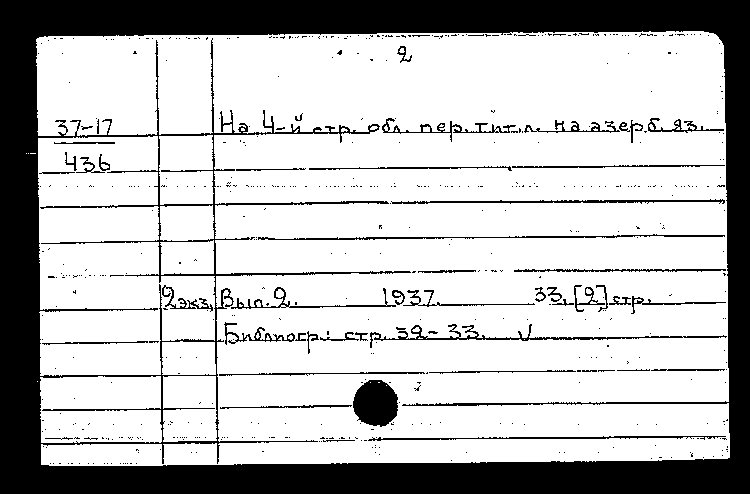 2
37-17
436
На 4-й стр. обл. пер. тит. л. на азерб. яз.
2 экз. Вып. 2. 1937. 33, [2] стр.
Библиогр.: стр. 32-33. √